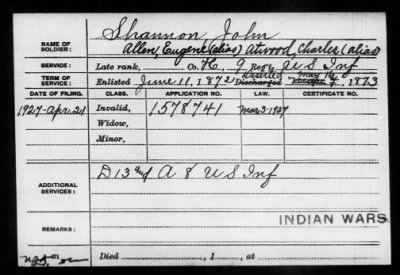 NAME OF SOLDIER: Shannon, John
Allen, Eugene (alias) Atwood, Charles (alias)
SERVICE: Late rank, Co. H, 9 Reg't U S Inf
TERM OF SERVICE: Enlisted June 11, 1872 Deserted Discharged May 19, 1873
DATE OF FILING. CLASS. APPLICATION NO. LAW. CERTIFICATE NO.
1927-Apr. 21 Invalid, 1578741 Mar 3-1927
Widow,
Minor,
ADDITIONAL SERVICES: D 13 and A 8 U S Inf
INDIAN WARS
REMARKS:
Died , 1 , at